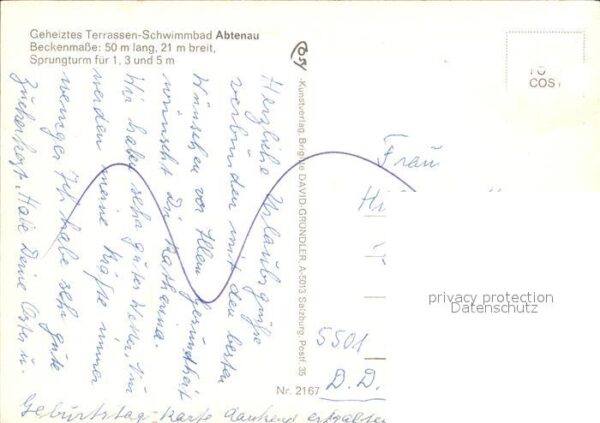 Geheiztes Terrassen-Schwimmbad Abtenau
Beckenmaße: 50 m lang, 21 m breit,
Sprungturm für 1, 3 und 5 m
Herzliche Urlaubsgrüße
verbunden mit den besten
Wünschen vor Allem Gesundheit
wünscht Dir Katharina.
Wir haben sehr gutes Wetter, nur
werden meine Kräfte immer
weniger. Ich habe sehr gute
Zuckerkost. Habe Deine Oster u.
Geburtstag-Karte dankend erhalten
Kunstverlag, Brigitte DAVID-GRÜNDLER A-5013 Salzburg, Postf. 35
Nr. 2167
COS
Frau
Hi
5501
D.D.
privacy protection
Datenschutz